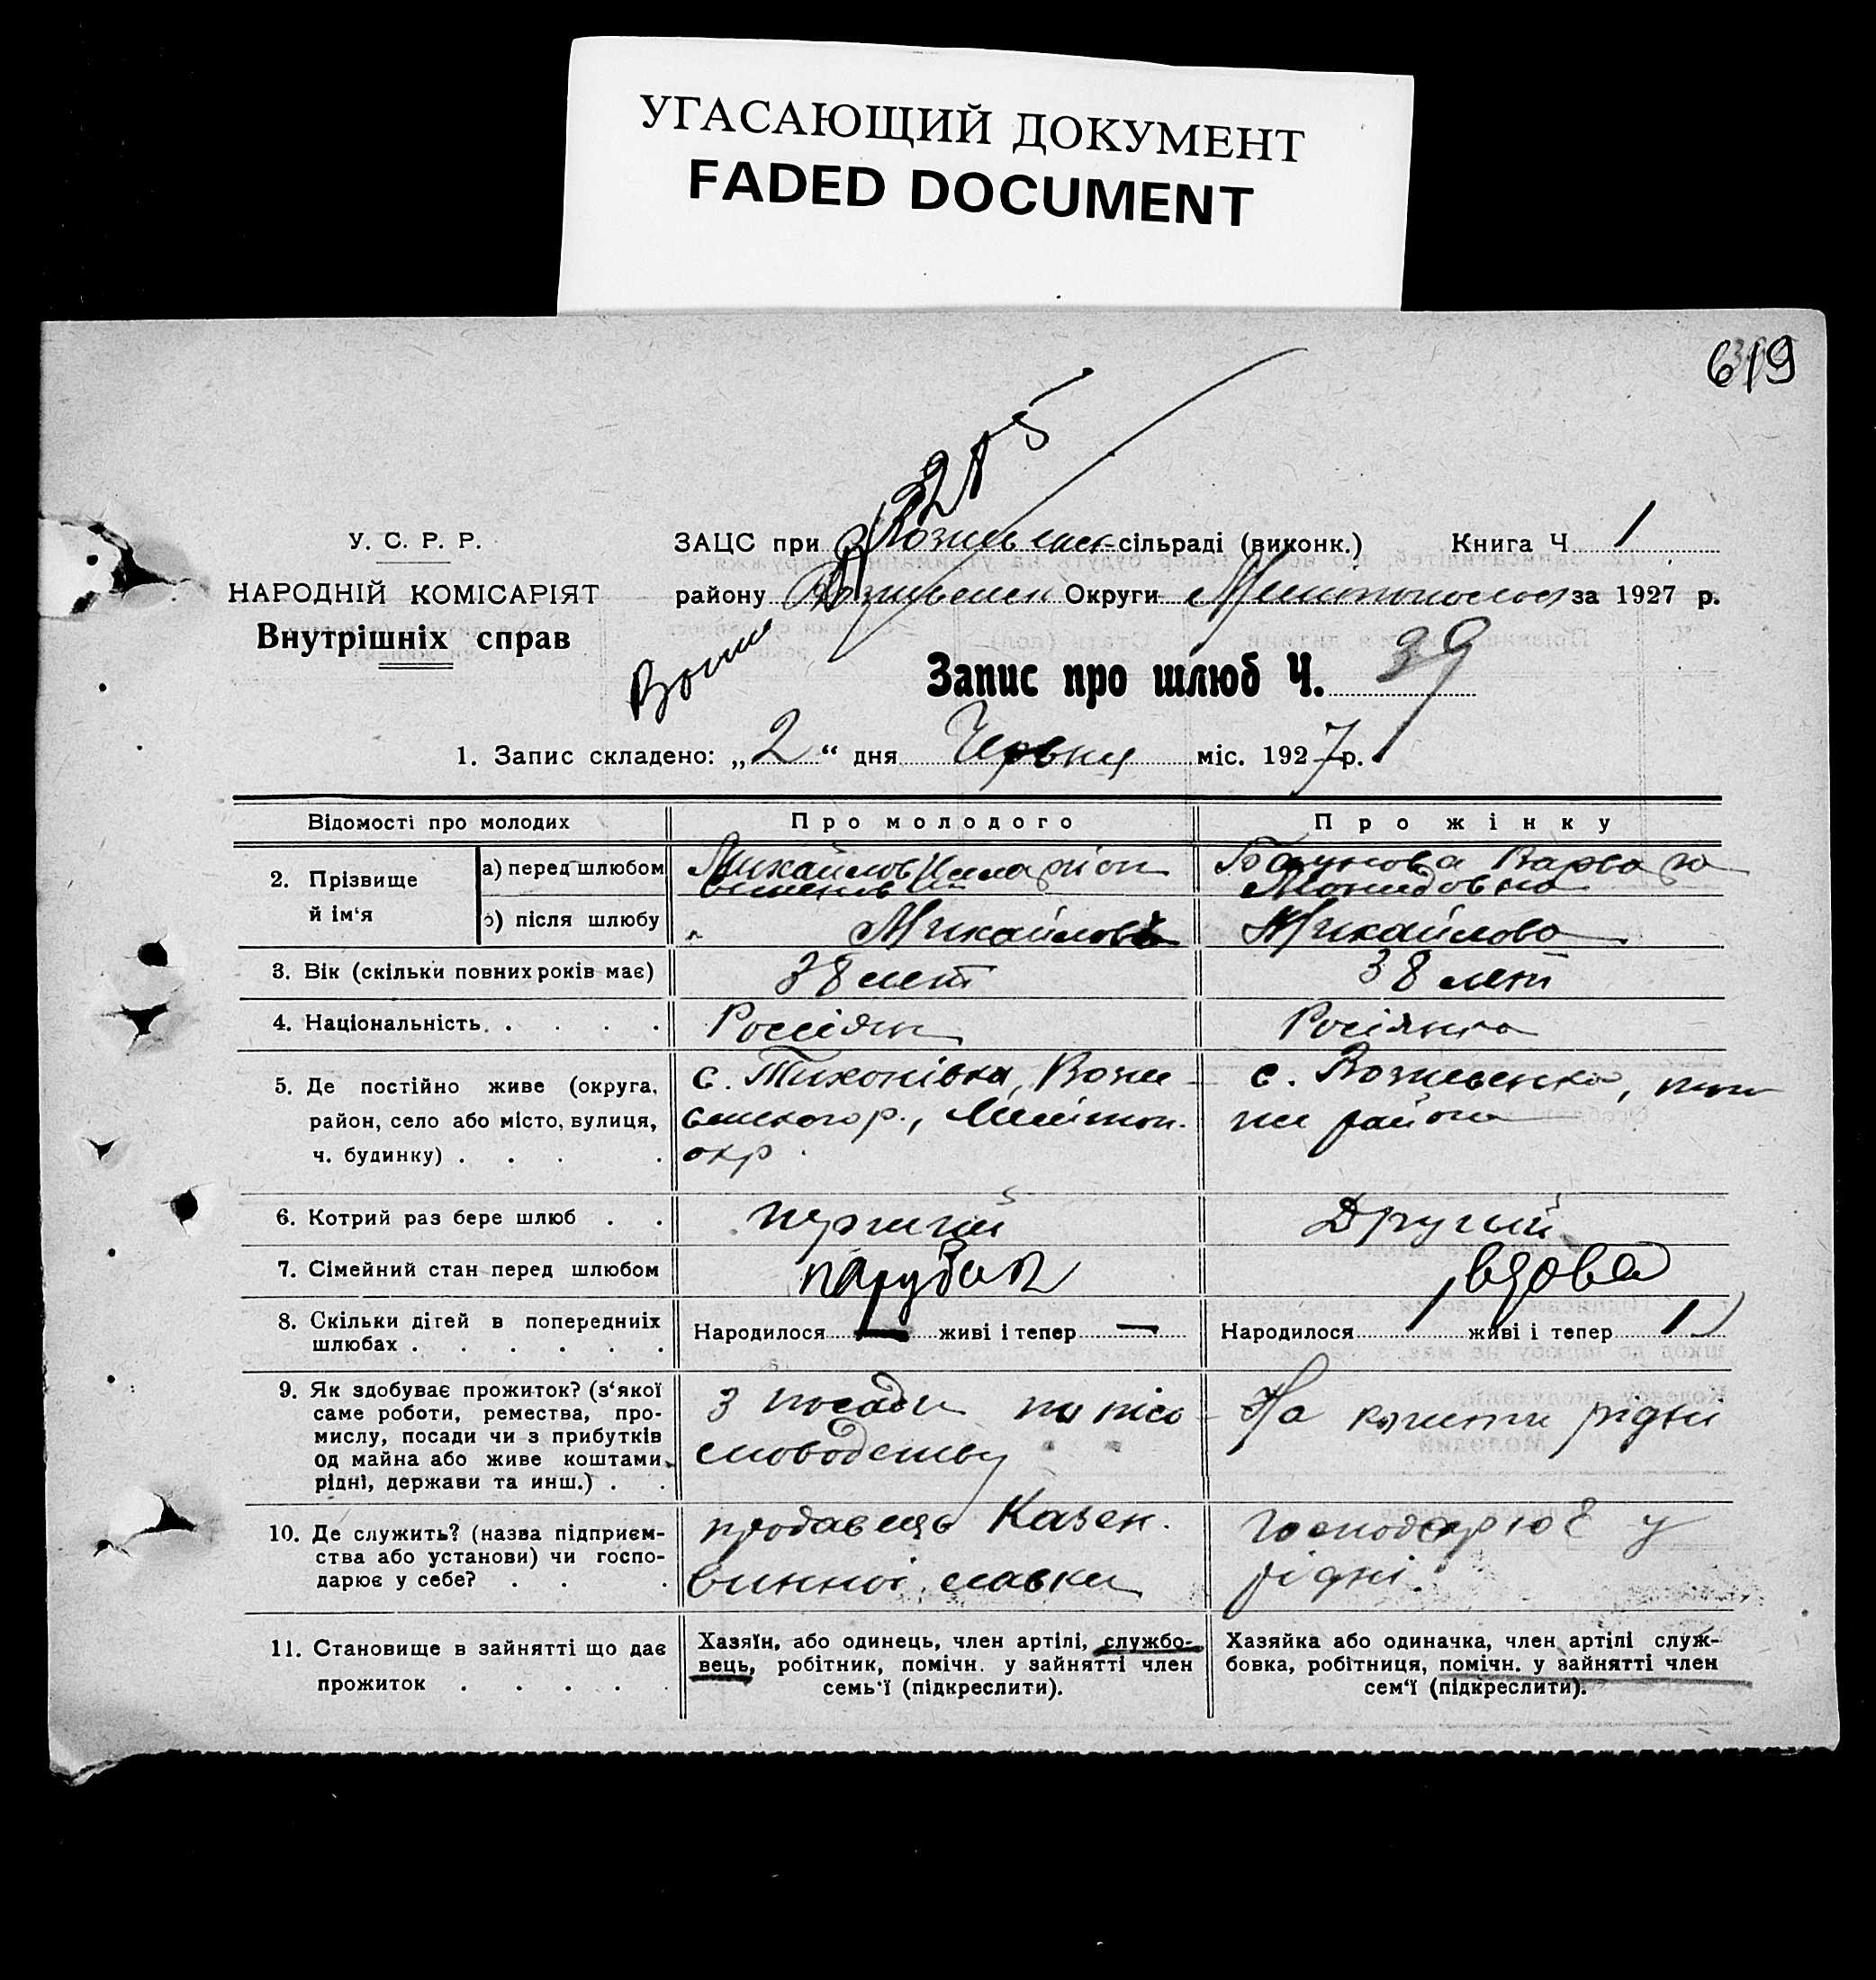 УГАСАЮЩИЙ ДОКУМЕНТ
FADED DOCUMENT
619
У. С. Р. Р.
НАРОДНІЙ КОМІСАРІЯТ
Внутрішніх справ
ЗАЦС при сільраді (виконк.) Книга Ч 1
району Округи за 1927 р.
Запис про шлюб Ч. 39
1. Запис складено: „2“ дня Червня міс. 1927 р.
Відомості про молодих Про молодого Про жінку
2. Прізвище й ім‘я
а) перед шлюбом Михайлов Иларіон Варвара
б) після шлюбу Михайлов Михайлова
3. Вік (скільки повних років має) 38 лет 38 лет
4. Національність Россіян Росіянка
5. Де постійно живе (округа, район, село або місто, вулиця, ч. будинку)
с. Тихонівка, Возне-
сенского р., Мелітоп.
окр.
с. Вознесенка,
района
6. Котрий раз бере шлюб перший Другий
7. Сімейний стан перед шлюбом парубок вдова
8. Скільки дітей в попередніх шлюбах
Народилося — живі і тепер —
Народилося 1 живі і тепер 1
9. Як здобуває прожиток? (з‘якої
саме роботи, ремества, про-
мислу, посади чи з прибутків
од майна або живе коштами
рідні, держави та инш.)
з посади
На кошти рідні
10. Де служить? (назва підприєм-
ства або установи) чи госпо-
дарює у себе?
продавець Казен.
винної лавки
господарює у
рідні.
11. Становище в зайнятті що дає
прожиток
Хазяїн, або одинець, член артілі, службо-
вець, робітник, помічн. у зайнятті член
семь‘ї (підкреслити).
Хазяйка або одиначка, член артілі служ-
бовка, робітниця, помічн. у зайнятті член
сем‘ї (підкреслити).